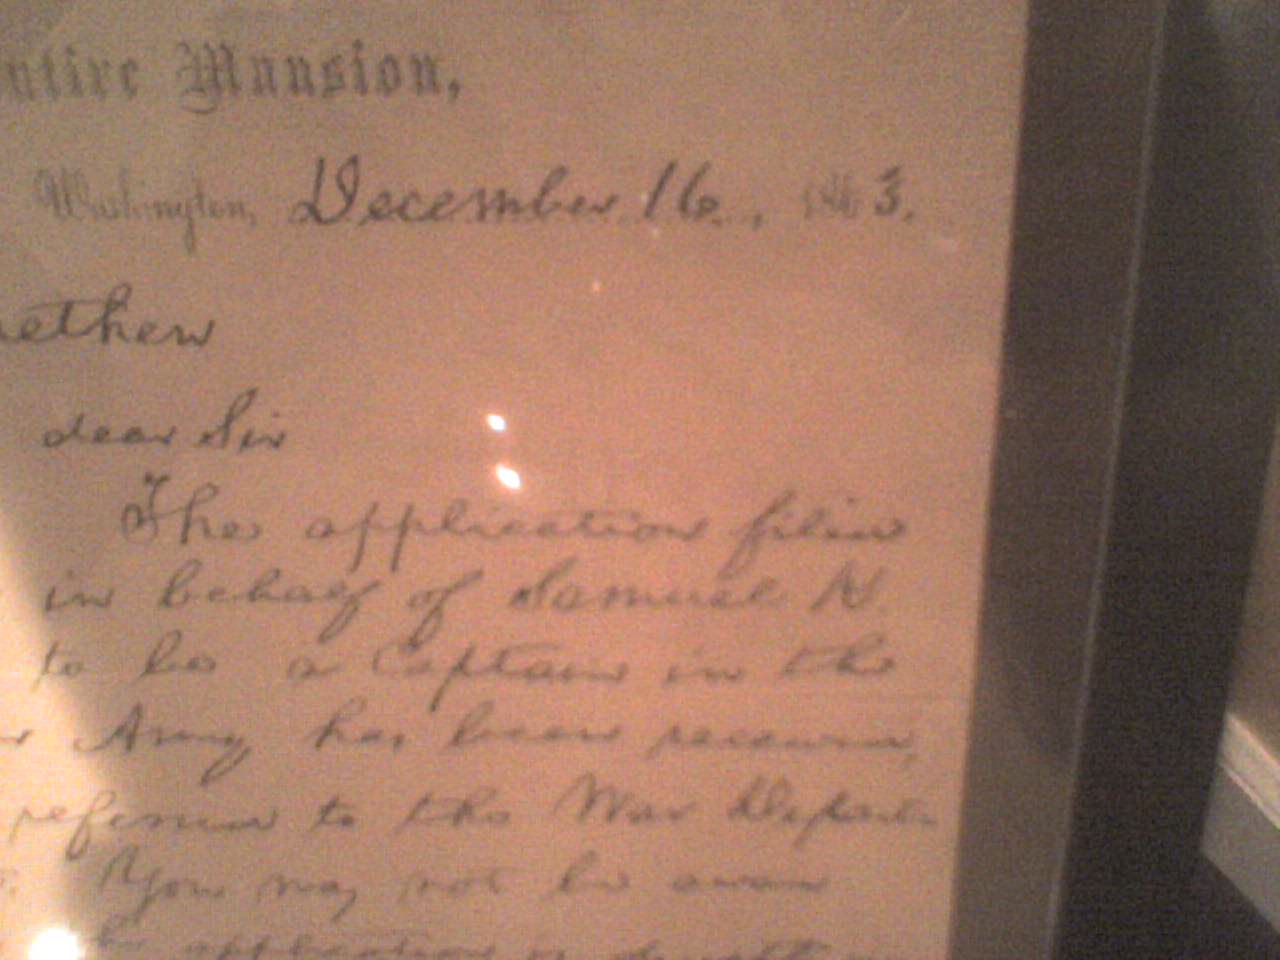 utive Mansion,
Washington, December 16, 1863.
dear Sir
The application filed
in behalf of Samuel H.
to be a Captain in the
Army has been received,
referred to the War Depart-
You may not be aware
application is